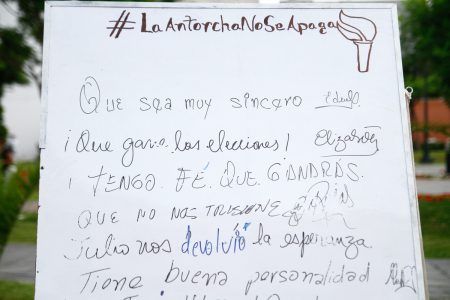 #LaAntorchaNoSeApaga
Que sea muy sincero
¡Que gane las elecciones!
¡TENGO. FÉ. QUE. GANARÁS.
QUE NO NOS TRAICIONE
Julio nos devolvió la esperanza
Tiene buena personalidad